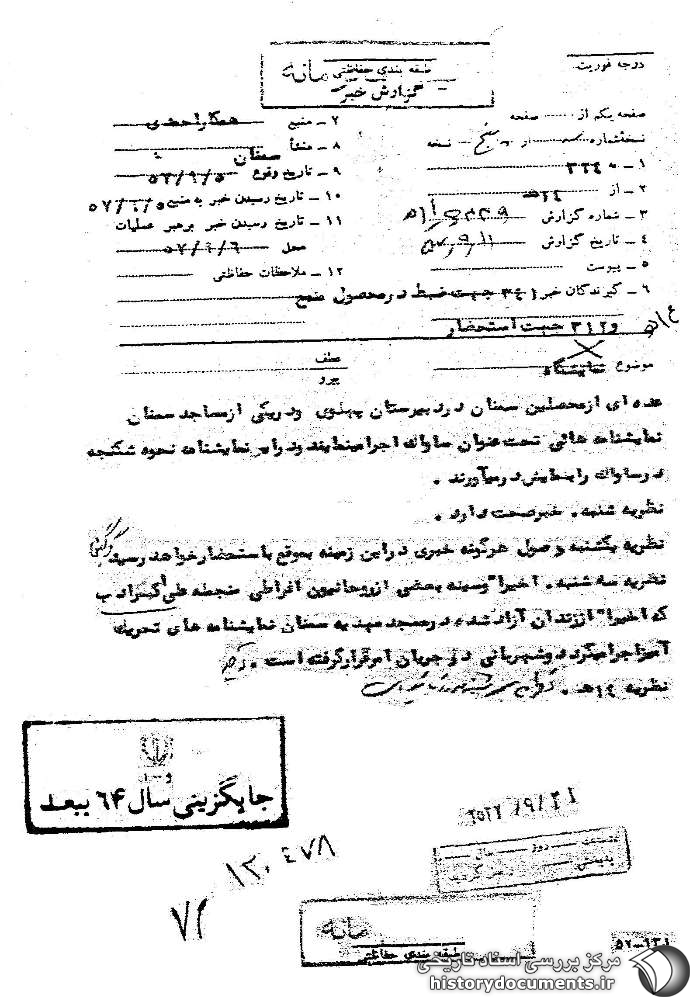 درجه فوریت:
طبقه بندی حفاظتی
گزارش خبر
صفحه یکم از صفحه
نسخه شماره از نسخه
۱ - به ۳۴۰
۲ - از
۳ - شماره گزارش
۴ - تاریخ گزارش ۵۷/۹/۱۱
۵ - پیوست
۶ - گیرندگان خبر ۳۴۱ جهت ضبط در محصول منبع
و ۳۱۲ جهت استحضار
۷ - منبع همکار احمدی
۸ - منشأ سمنان
۹ - تاریخ وقوع
۱۰ - تاریخ رسیدن خبر به منبع
۱۱ - تاریخ رسیدن خبر برهبر عملیات
محل ۵۷/۹/۶
۱۲ - ملاحظات حفاظتی
موضوع نمایشگاه
عطف
پیرو
عده ای از محصلین سمنان در دبیرستان پهلوی و در یکی از مساجد سمنان
نمایشنامه هائی تحت عنوان ساواک اجرا مینمایند و در این نمایشنامه نحوه شکنجه
در ساواک را بنمایش درمیآورند .
نظریه شنبه . خبر صحت دارد .
نظریه یکشنبه وصول هرگونه خبری در این زمینه بموقع باستحضار خواهد رسید
نظریه سه شنبه . اخیرا" وسیله بعضی از روحانیون افراطی منجمله
که اخیرا" از زندان آزاد شده در مسجد مهدیه سمنان نمایشنامه های تحریک
آمیز اجرا میگردد و شهربانی در جریان امر قرار گرفته است .
نظریه ۱۴هـ .
جایگزینی سال ۶۴ ببعد
۱۳۰۴۷۸
۷۲
طبقه بندی حفاظتی
۵۲-۱۳۱
مرکز بررسی اسناد تاریخی
historydocuments.ir